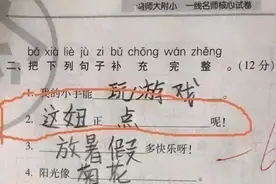 师大附小 一线名师核心试卷
bǎ xià liè jù zi bǔ chōng wán zhěng
二、把下列句子补充完整。(12分)
1. 奥的小手能 玩游戏
2. 这妞正点 呢!
3. 放暑假 多快乐呀!
4. 阳光像 菊花